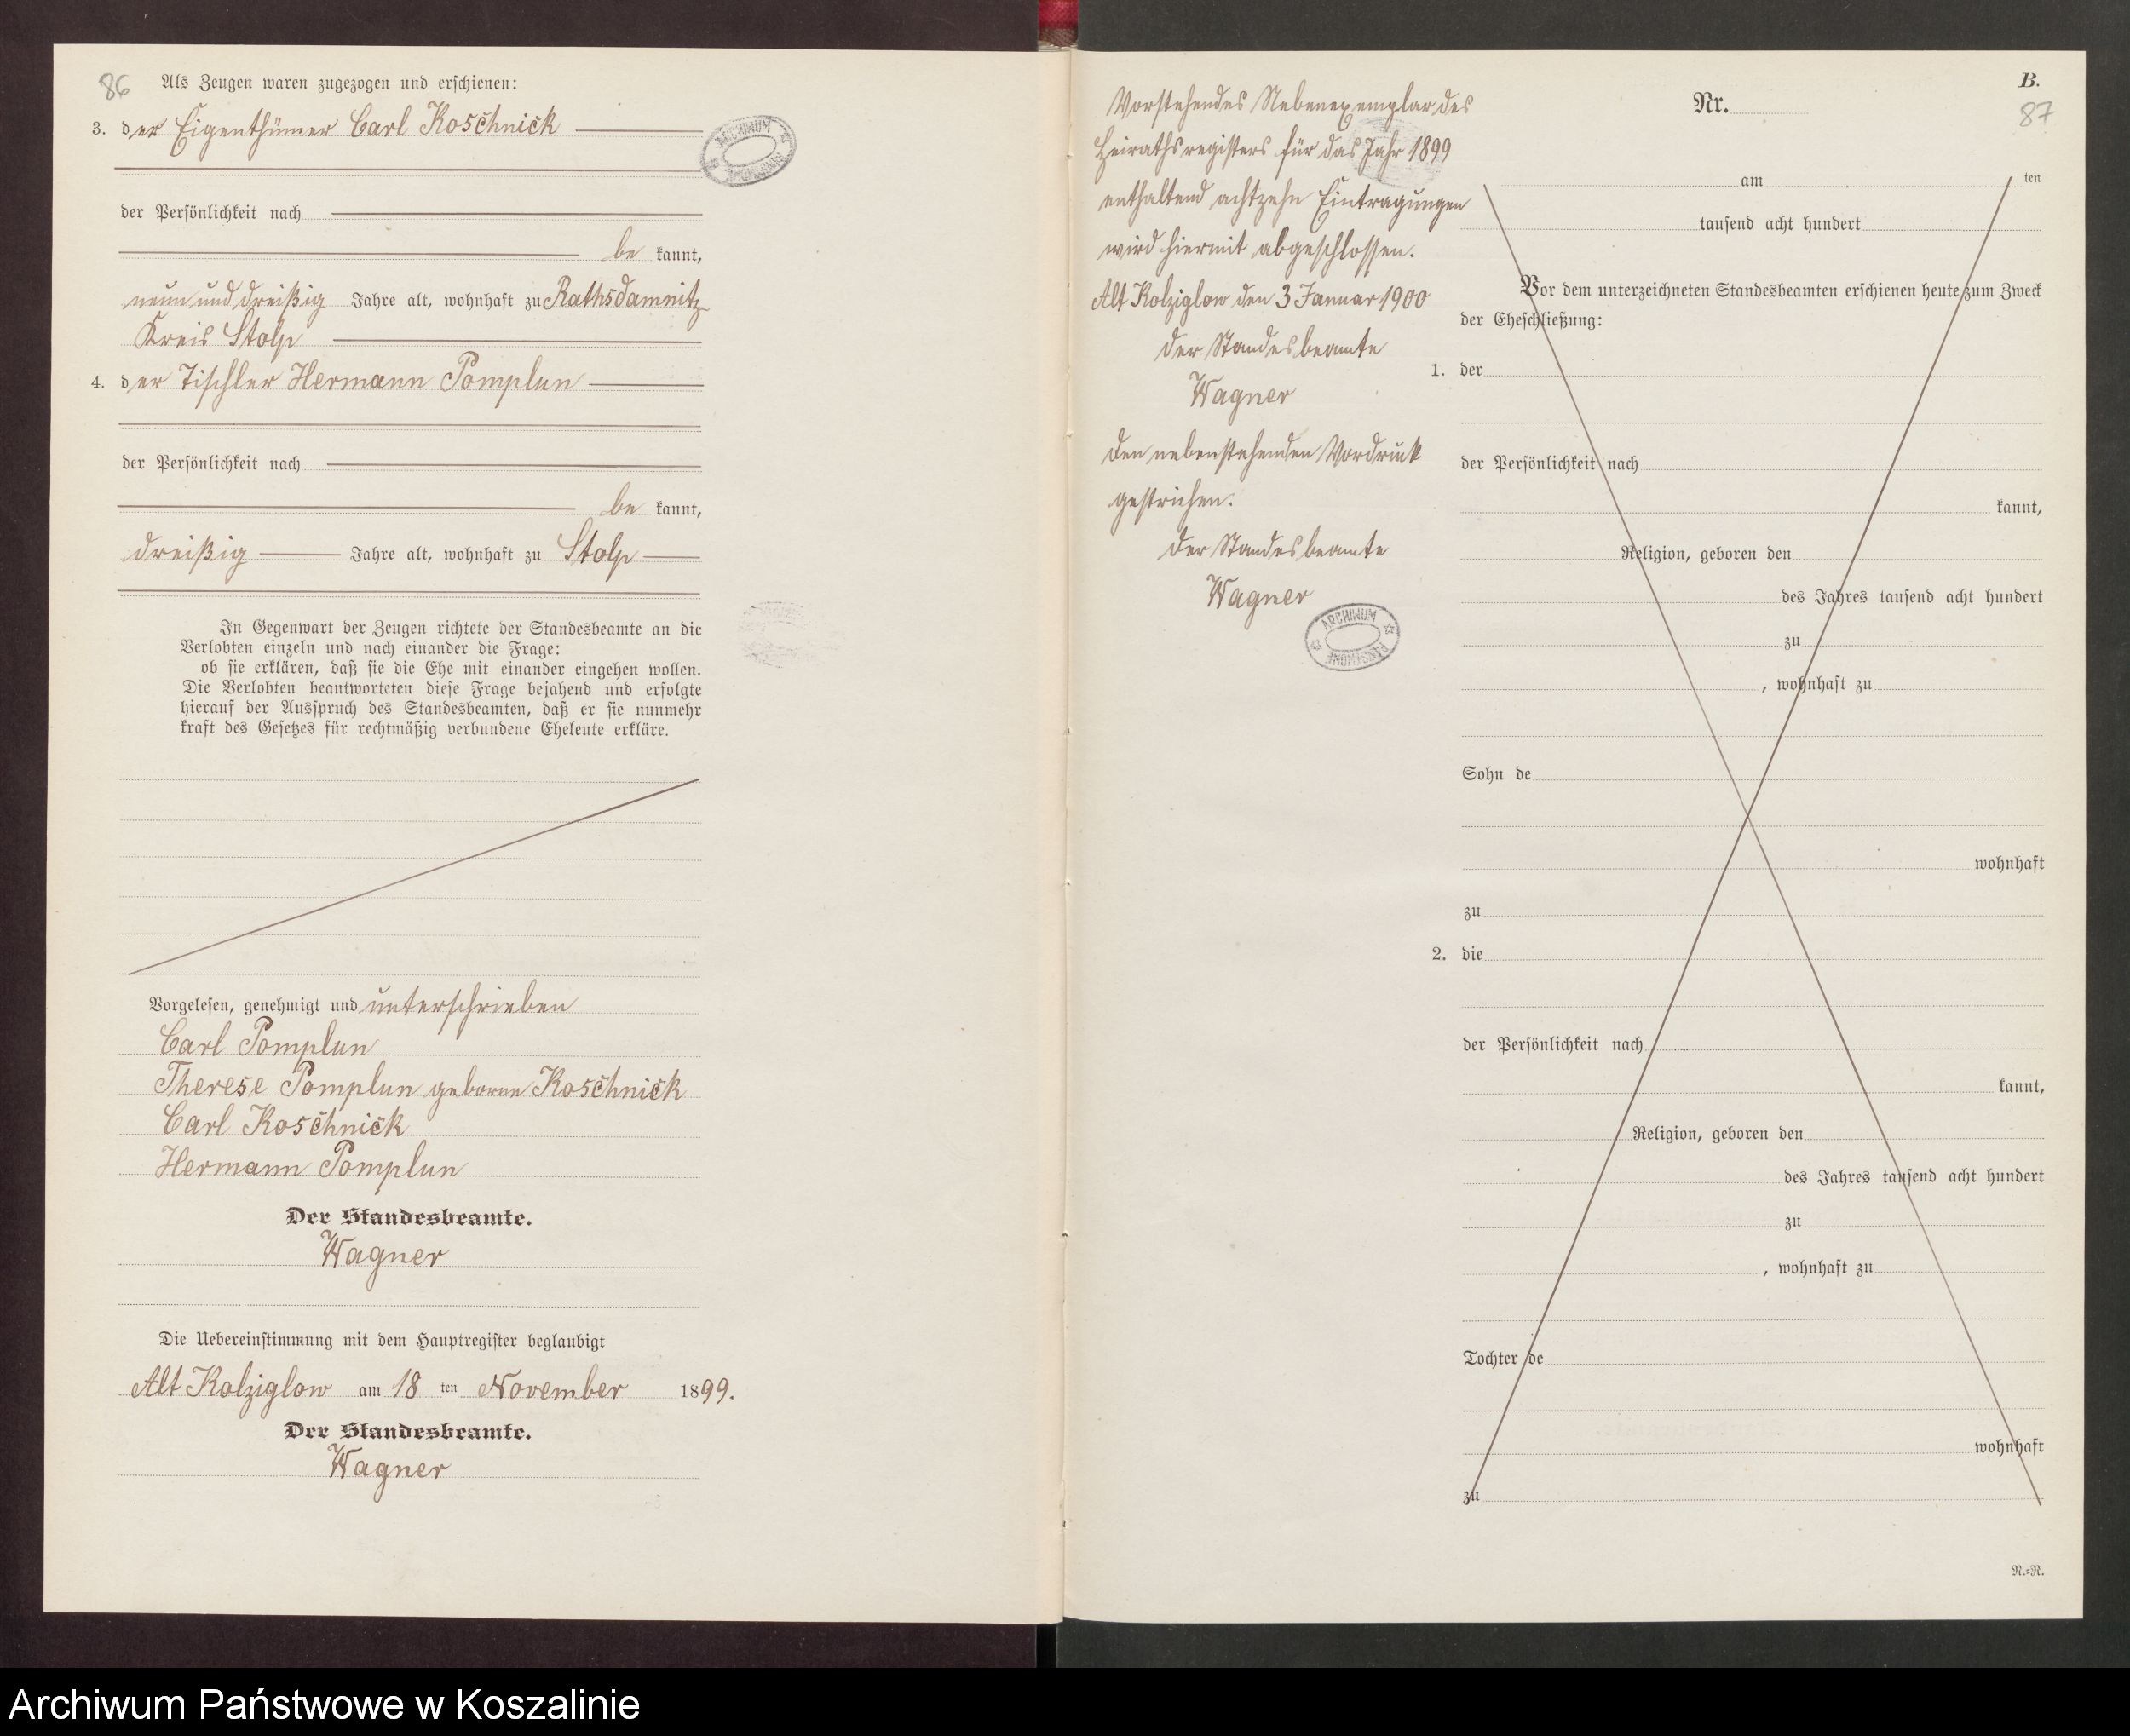 86
Als Zeugen waren zugezogen und erschienen:
3. der Eigenthümer Carl Koschnick
der Persönlichkeit nach
be kannt,
neun und dreißig Jahre alt, wohnhaft zu Rathsdamnitz
Kreis Stolp
4. der Tischler Hermann Pomplun
der Persönlichkeit nach
be kannt,
dreißig Jahre alt, wohnhaft zu Stolp
In Gegenwart der Zeugen richtete der Standesbeamte an die
Verlobten einzeln und nach einander die Frage:
ob sie erklären, daß sie die Ehe mit einander eingehen wollen.
Die Verlobten beantworteten diese Frage bejahend und erfolgte
hierauf der Ausspruch des Standesbeamten, daß er sie nunmehr
kraft des Gesetzes für rechtmäßig verbundene Eheleute erkläre.
Vorgelesen, genehmigt und unterschrieben
Carl Pomplun
Therese Pomplun geborne Koschnick
Carl Koschnick
Hermann Pomplun
Der Standesbeamte.
Wagner
Die Uebereinstimmung mit dem Hauptregister beglaubigt
Alt Kolziglow am 18 ten November 1899.
Der Standesbeamte.
Wagner
ARCHIWUM
Vorstehendes Nebenexemplar des
Heirathsregisters für das Jahr 1899
enthaltend achtzehn Eintragungen
wird hiermit abgeschlossen.
Alt Kolziglow den 3 Januar 1900
Der Standesbeamte
Wagner
Den nebenstehenden Vordruck
gestrichen.
Der Standesbeamte
Wagner
ARCHIWUM
B.
87
Nr.
am ten
tausend acht hundert
Vor dem unterzeichneten Standesbeamten erschienen heute zum Zweck
der Eheschließung:
1. der
der Persönlichkeit nach
kannt,
Religion, geboren den
des Jahres tausend acht hundert
zu
, wohnhaft zu
Sohn de
wohnhaft
zu
2. die
der Persönlichkeit nach
kannt,
Religion, geboren den
des Jahres tausend acht hundert
zu
, wohnhaft zu
Tochter de
wohnhaft
zu
N.=N.
Archiwum Państwowe w Koszalinie